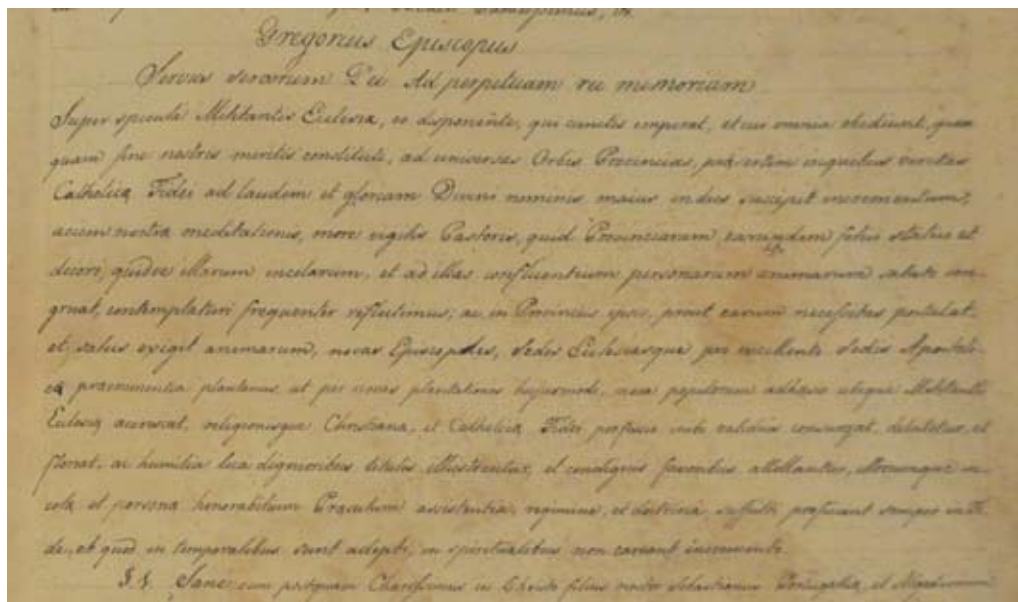 Gregorius Episcopus
Servus servorum Dei Ad perpetuam rei memoriam
Super specula Militantis Ecclesiæ, eo disponente, qui cunctis imperat, et cui omnia obediunt, quam
quam sine nostris meritis constituti, ad universas Orbis Provincias, præsertim in quibus veritas
Catholicæ Fidei ad laudem et gloriam Divini nominis maius in dies suscepit incrementum,
aciem nostræ meditationis, more vigilis Pastoris, quid Provinciarum earumdem felici statui et
decori, quidve illarum incolarum, et ad illas confluentium personarum animarum saluti con-
gruat, contemplaturi frequenter reflectimus; ac in Provinciis ipsis, prout earum necessitas postulat,
et salus exigit animarum, novas Episcopales, Sedes Ecclesiasque pro excellenti Sedis Apostoli-
cæ præeminentia plantamus, ut per novas plantationes hujusmodi, nova populorum adhæsio Militanti
Ecclesiæ accrescat, religionisque Christianæ, et Catholicæ Fidei professio inde validius consurgat, dilatetur, et
floreat, ac humilia loca dignioribus titulis illustrentur, et condignis favoribus attollantur, in-
colæ et personæ honorabilium Præsulum assistentia, regimine, et doctrina suffulti proficiant semper in fi-
de, et quod in temporalibus sunt adepti, in spiritualibus non careant incremento.
§ 1. Sane cum postquam Charissimus in Christo filius noster Sebastianus Portugaliæ, et Algarbiorum